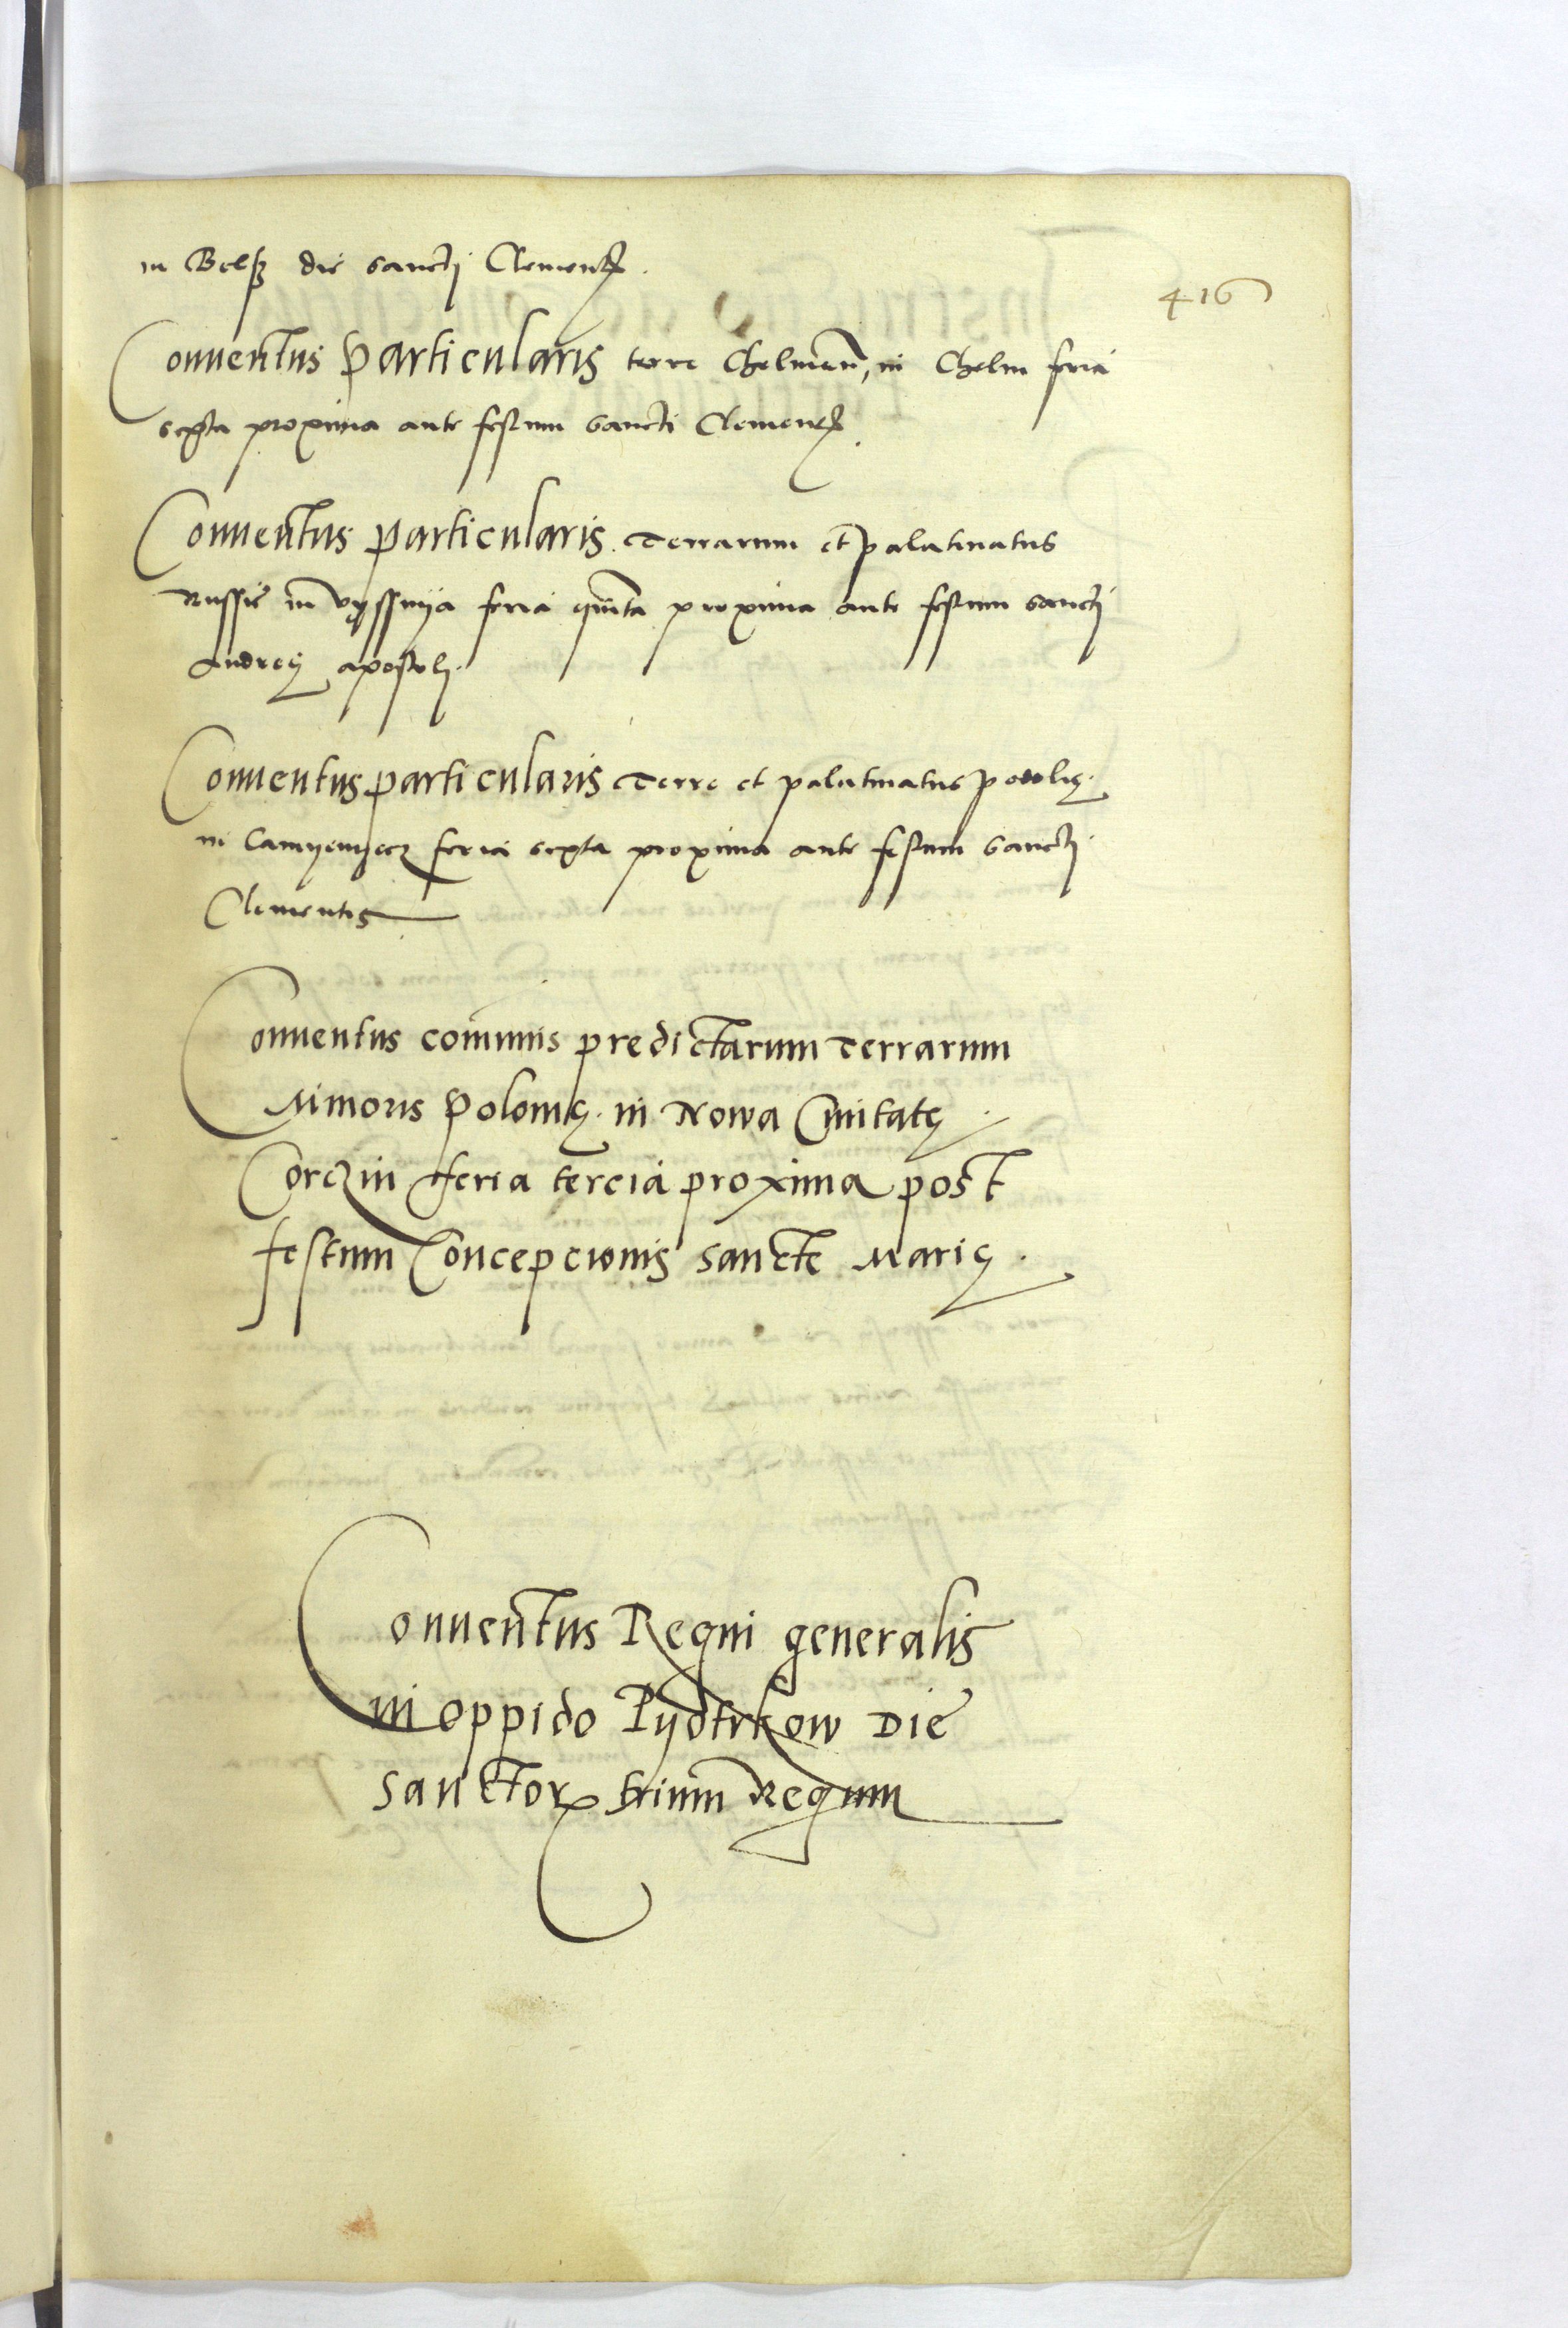 416
in Belß die sancti Clementꝭ.
Conuentus particularis terre Chelmen̄, in Chelm feria
sexta proxima ante festum sancti Clementꝭ.
Conuentus particularis terrarum et palatinatus
Russie in Vyssnya feria quinta proxima ante festum sancti
Andreę apostoli.
Conuentus particularis terre et palatinatus podolię.
in Camyenyecz feria sexta proxima ante festum sancti
Clementis
Conuentus com̄unis predictarum terrarum
Minoris Polonię. in Nowa Ciuitatę
Corczin feria tercia proxima post
festum Concepcionis sancte Marię.
Conuentus Regni generalis
in oppido Pyotrkow die
sanctoꝝ trium Regum